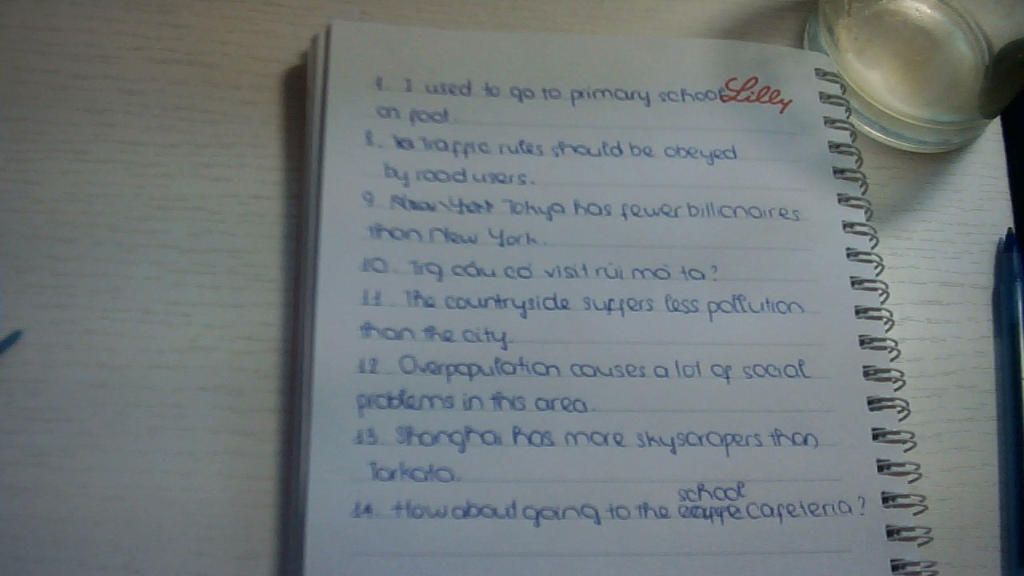 7. I used to go to primary school Lilly
on foot.
8. Traffic rules should be obeyed
by road users.
9. New York Tokyo has fewer billionaires
than New York.
10. Trg câu có visit rùi mò ta?
11. The countryside suffers less pollution
than the city.
12. Overpopulation causes a lot of social
problems in this area.
13. Shanghai has more skyscrapers than
Jarkata.
school
14. How about going to the cafeteria?